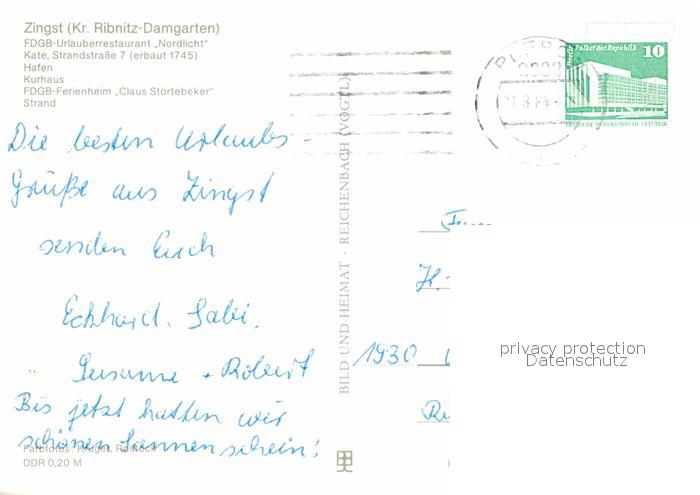 Zingst (Kr. Ribnitz-Damgarten)
FDGB-Urlauberrestaurant „Nordlicht"
Kate, Strandstraße 7 (erbaut 1745)
Hafen
Kurhaus
FDGB-Ferienheim „Claus Störtebeker"
Strand
Die besten Urlaubs-
Grüße aus Zingst
senden Euch
Eckhard, Gabi,
Susanne + Robert
Bis jetzt hatten wir
schönen Sonnenschein!
Farbfotos: Krüger, Rostock
DDR 0,20 M
BILD UND HEIMAT · REICHENBACH (VOGTL)
Palast der Republik 10
DEUTSCHE DEMOKRATISCHE REPUBLIK
1930
privacy protection
Datenschutz